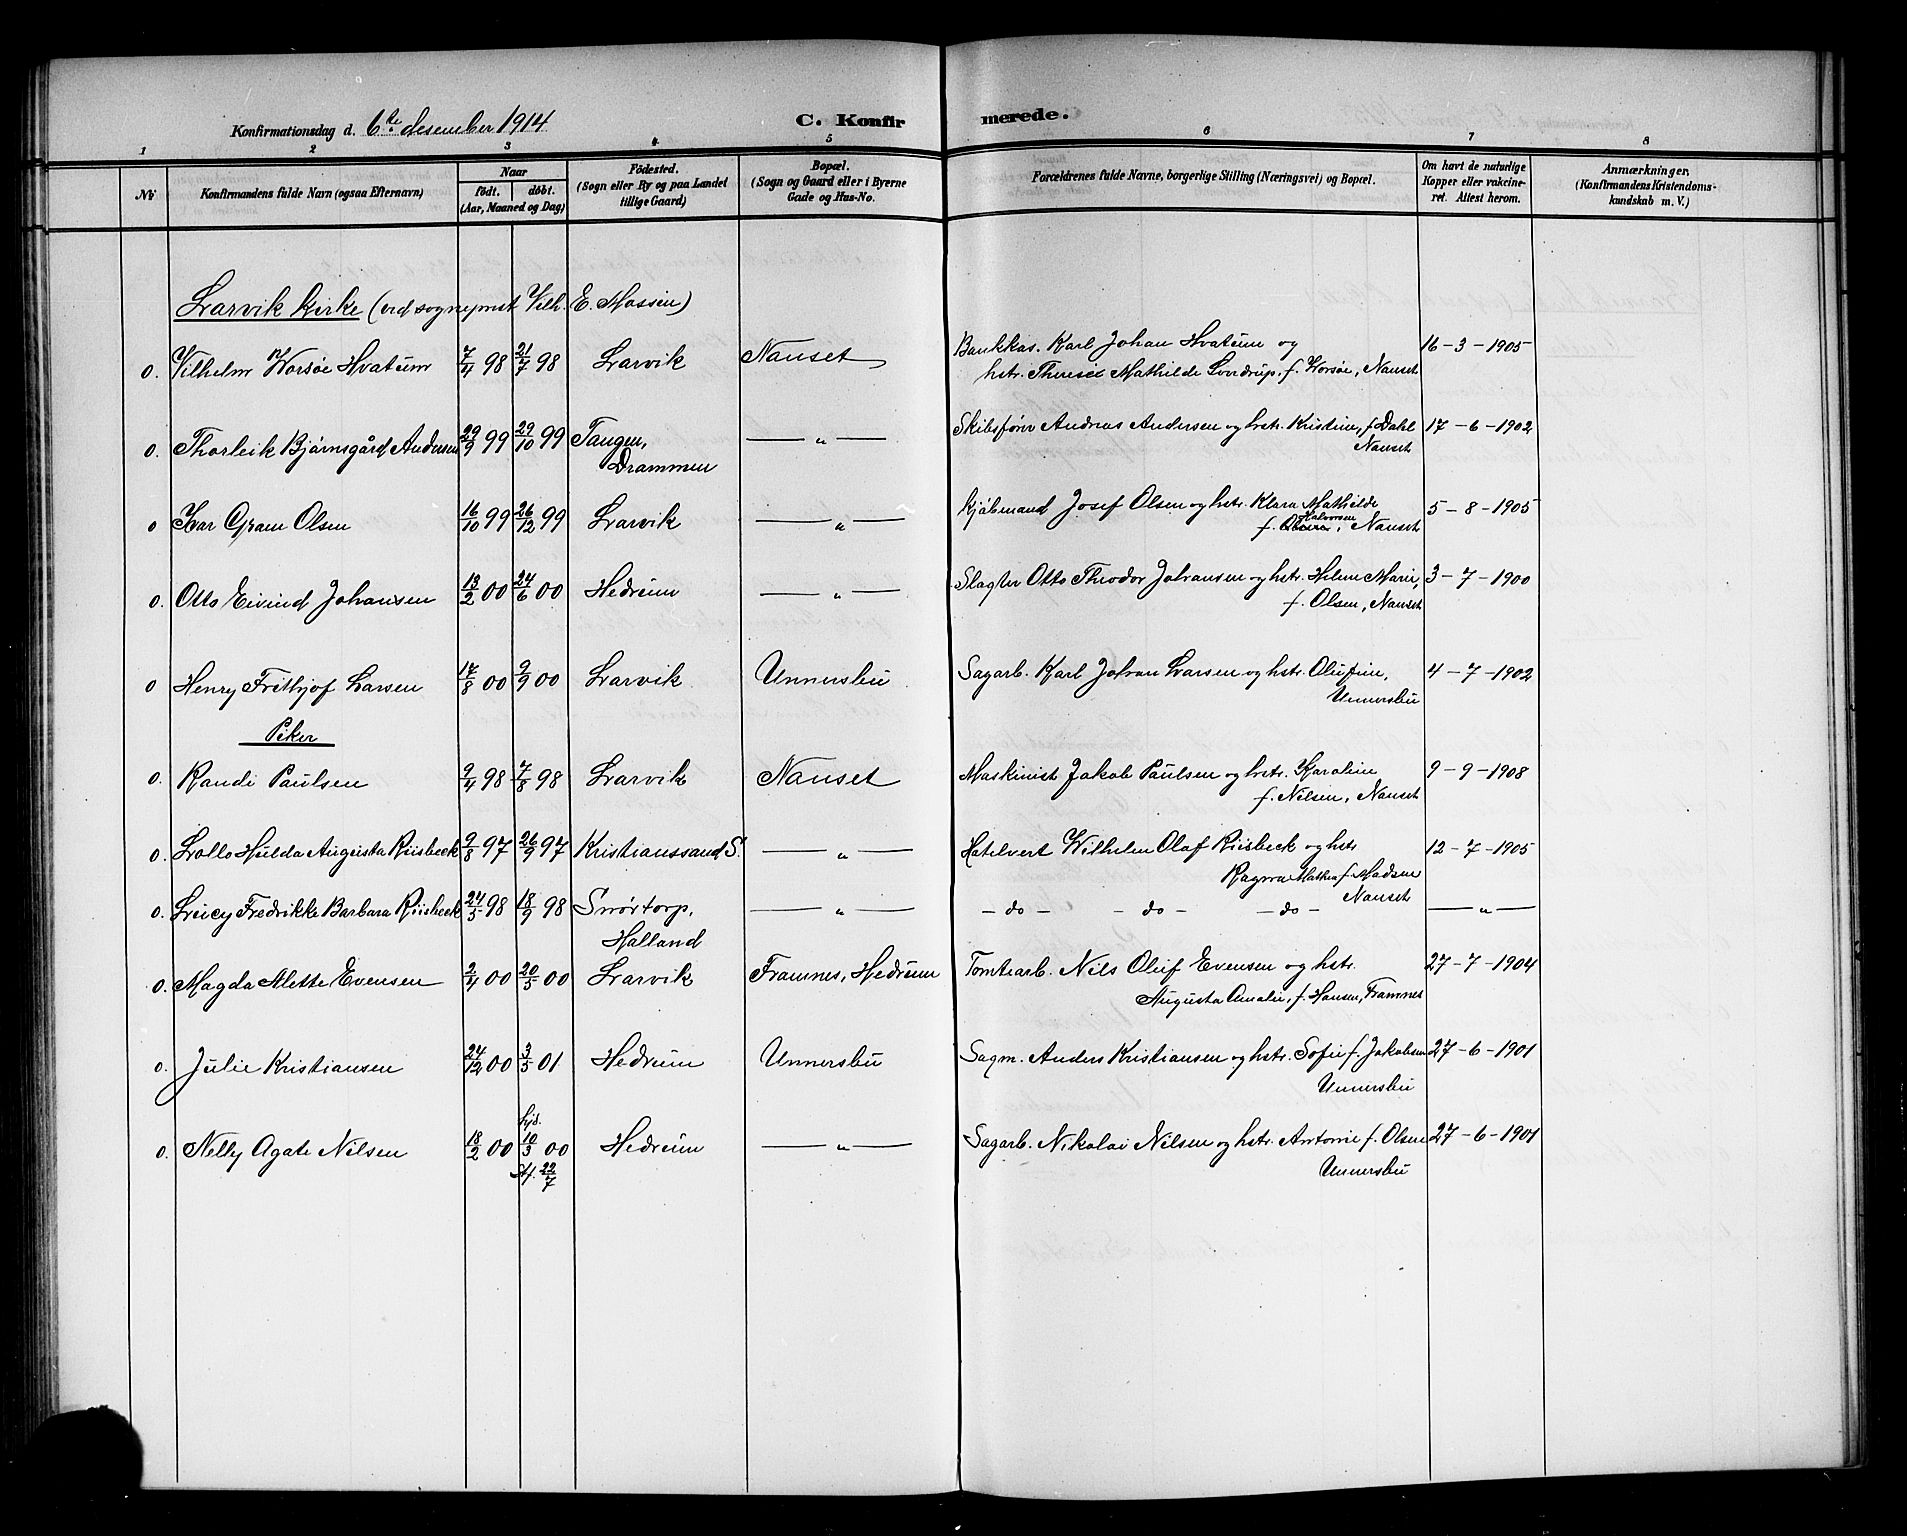 Konfirmationsdag d. 6te desember 1914 C. Konfirmerede.
1 2 3 4 5 6 7 8
No Konfirmandens fulde Navn (ogsaa Efternavn) Naar födt. döbt. (Aar, Maaned og Dag) Födested. (Sogn eller By og paa Landet tillige Gaard) Bopæl. (Sogn og Gaard eller i Byerne Gade og Hus-No. Forældrenes fulde Navne, borgerlige Stilling (Næringsvei) og Bopæl. Om havt de naturlige Kopper eller vakcineret. Attest herom. Anmærkninger. (Konfirmandens Kristendomskundskab m. V.)
Larvik kirke (ved sogneprest Vilh. E. Massen)
o. Vilhelm Worsöe Hvatum 7/4 98 21/7 98 Larvik Nanset Bankkas. Karl Johan Hvatum og 16-3-1905
hstr. Therese Mathilde Sverdrup, f. Worsöe, Nanset
o. Thorleik Bjørnsgård Andersen 29/9 99 29/10 99 Tangen, — „ — Skibsfører Andreas Andersen og hstr. Kristine, f. Dahl 17-6-1902
Drammen Nanset
o Ivar Gram Olsen 16/10 99 26/12 99 Larvik — „ — Kjøbmand Josef Olsen og hstr. Klara Mathilde 5-8-1905
f. Halvorsen, Nanset
o. Otto Eivind Johansen 13/2 00 24/6 00 Hedrum — „ — Slagter Otto Theodor Johansen og hstr. Helene Marie, 3-7-1900
f. Olsen, Nanset
o Henry Frithjof Larsen 17/8 00 9/9 00 Larvik Unnersbu Sagarb. Karl Johan Larsen og hstr. Olufine, 4-7-1902
Unnersbu
Piker
o. Randi Paulsen 9/4 98 7/8 98 Larvik Nanset Maskinist Jakob Paulsen og hstr. Karoline 9-9-1908
f. Nilsen, Nanset
o. Lollo Hulda Augusta Riisbeck 9/8 97 26/9 97 Kristianssand S. — „ — Hotelvert Wilhelm Olaf Riisbeck og hstr. 12-7-1905
Ragna Mathea f. Madsen
Nanset
o. Lucy Fredrikke Barbara Riisbeck 24/5 98 18/9 98 Snörtorp, — „ — - do - - do - - do - — „ —
Halland
o. Magda Alette Evensen 2/4 00 20/5 00 Larvik Framnes, Hedrum Tomtearb. Nils Oluf Evensen og hstr. 27-7-1904
Augusta Amalie, f. Hansen, Framnes
o. Julie Kristiansen 24/12 00 3/5 01 Hedrum Unnersbu Sagm. Anders Kristiansen og hstr. Sofie f. Jakobsen 27-6-1901
Unnersbu
o. Nelly Agate Nilsen 18/2 00 hjd. 10/3 00 st. 22/7 Hedrum — „ — Sagarb. Nikolai Nilsen og hstr. Antonie f. Olsen 27-6-1901
Unnersbu